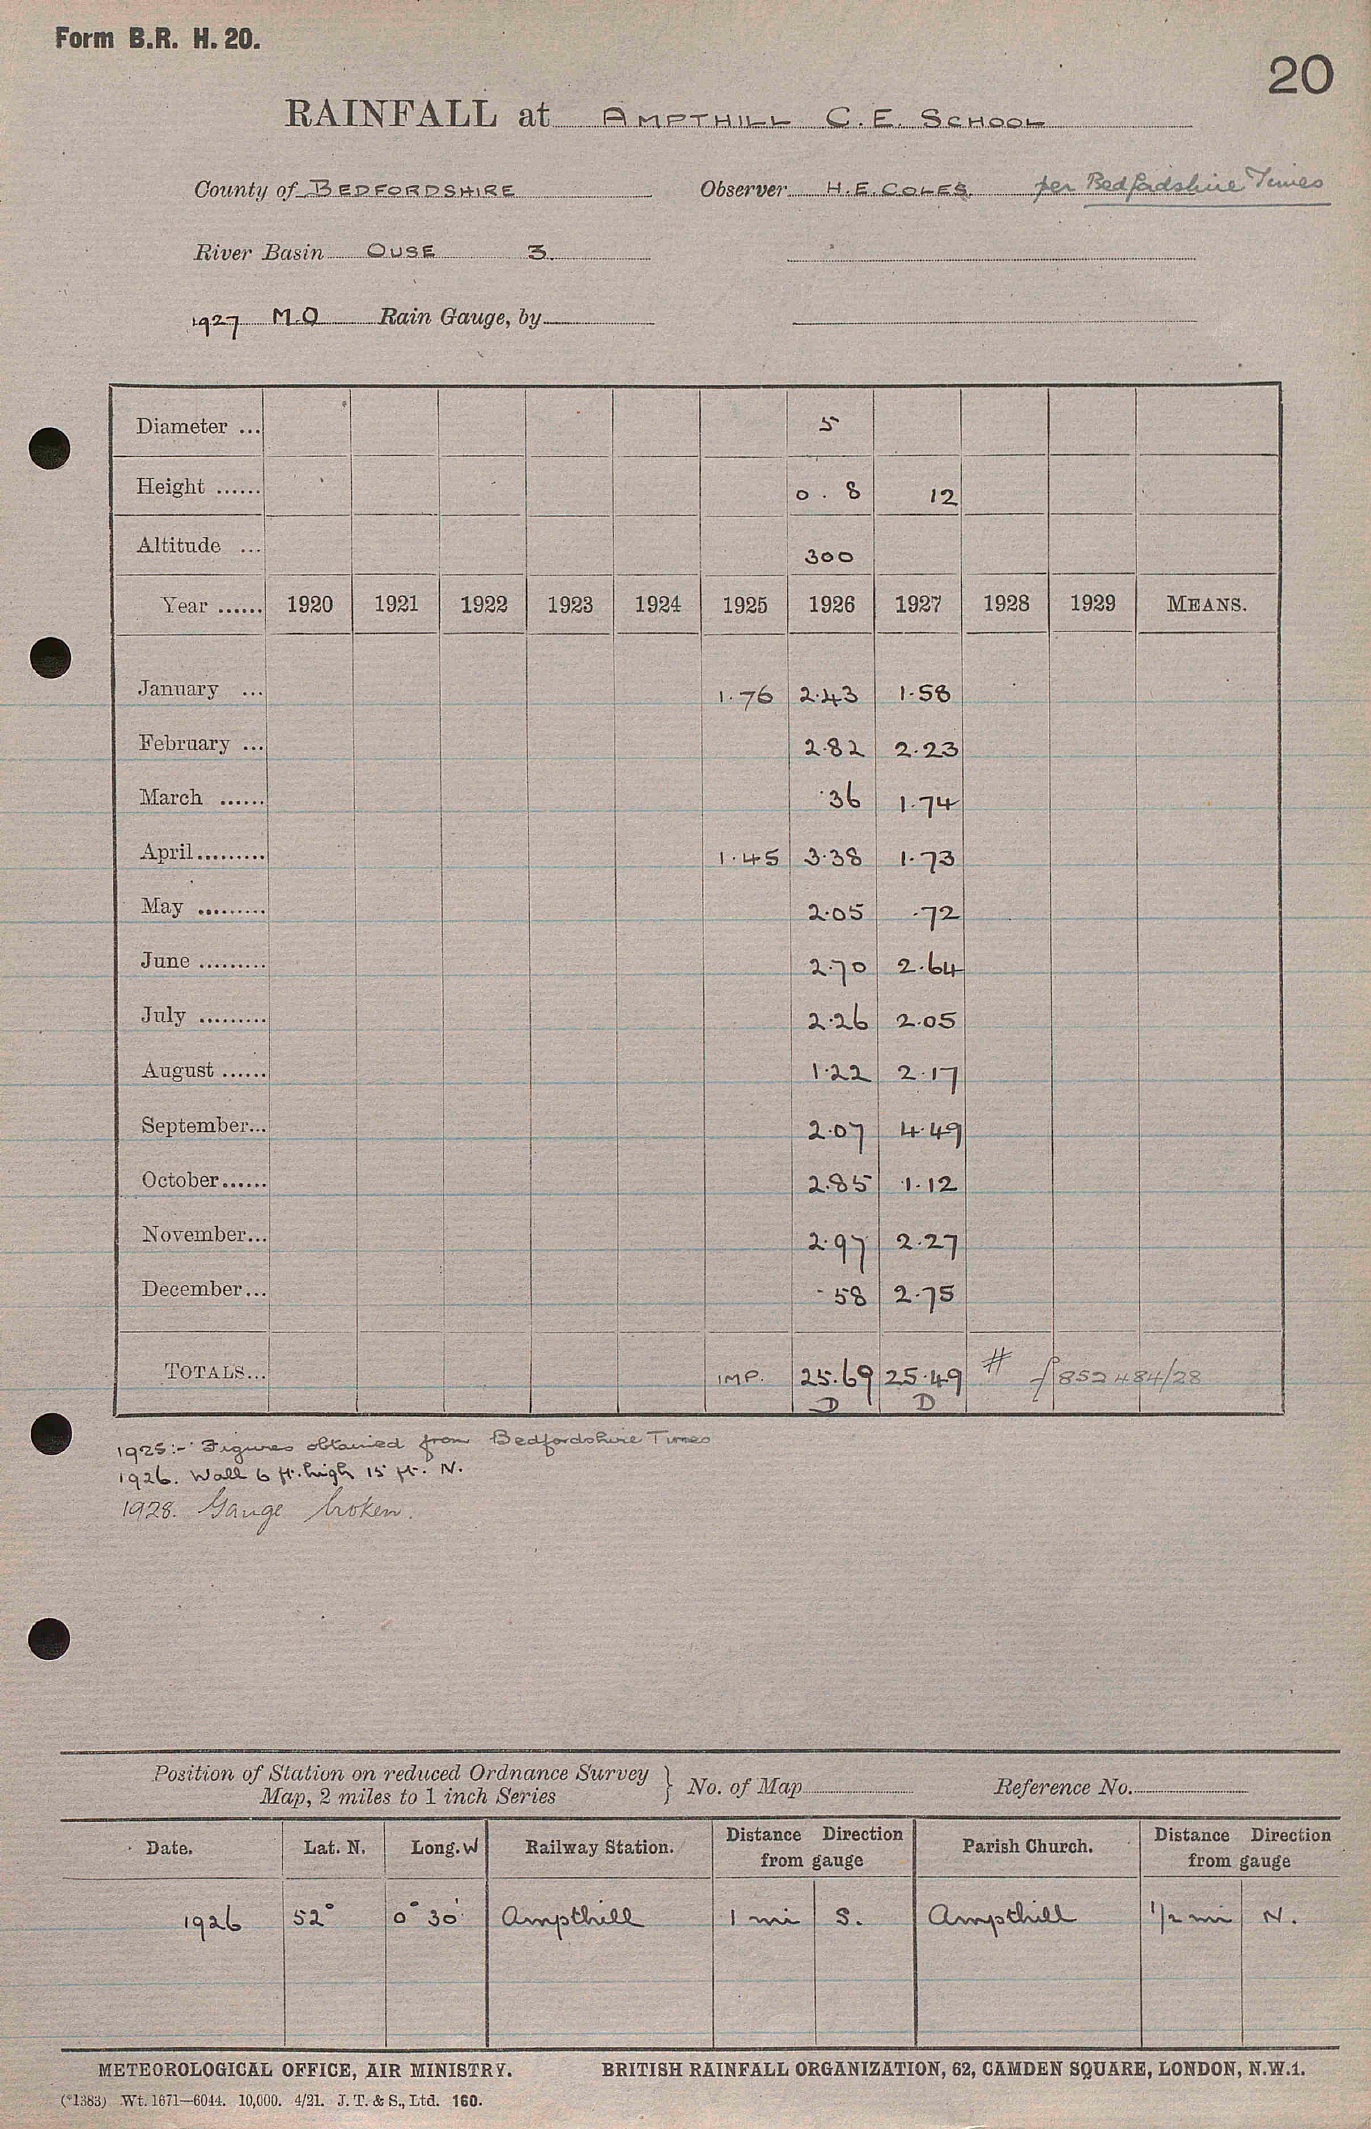 Form B.R. H. 20.
20
RAINFALL at AMPTHILL C.E. SCHOOL
County of BEDFORDSHIRE Observer H.E. COLES. per Bedfordshire Times
River Basin OUSE 3.
1927 M.O Rain Gauge, by
Diameter ... 5
Height ...... 0. 8 12
Altitude ... 300
Year ...... 1920 1921 1922 1923 1924 1925 1926 1927 1928 1929 MEANS.
January ... 1.76 2.43 1.58
February ... 2.82 2.23
March ...... .36 1.74
April......... 1.45 3.38 1.73
May ......... 2.05 .72
June ......... 2.70 2.64
July ......... 2.26 2.05
August ...... 1.22 2.17
September... 2.07 4.49
October...... 2.85 1.12
November... 2.97 2.27
December... .58 2.75
TOTALS... IMP. 25.69 25.49 # f 852484/28
D D
1925:- Figures obtained from Bedfordshire Times
1926. Wall 6 ft. high 15 ft. N.
1928. Gauge broken.
Position of Station on reduced Ordnance Survey } No. of Map Reference No.
Map, 2 miles to 1 inch Series
Date. Lat. N. Long. W Railway Station. Distance Direction from gauge Parish Church. Distance Direction from gauge
1926 52° 0° 30' Ampthill 1 mi S. Ampthill 1/2 mi N.
METEOROLOGICAL OFFICE, AIR MINISTRY. BRITISH RAINFALL ORGANIZATION, 62, CAMDEN SQUARE, LONDON, N.W.1.
(*1383) Wt. 1671—6044. 10,000. 4/21. J. T. & S., Ltd. 160.